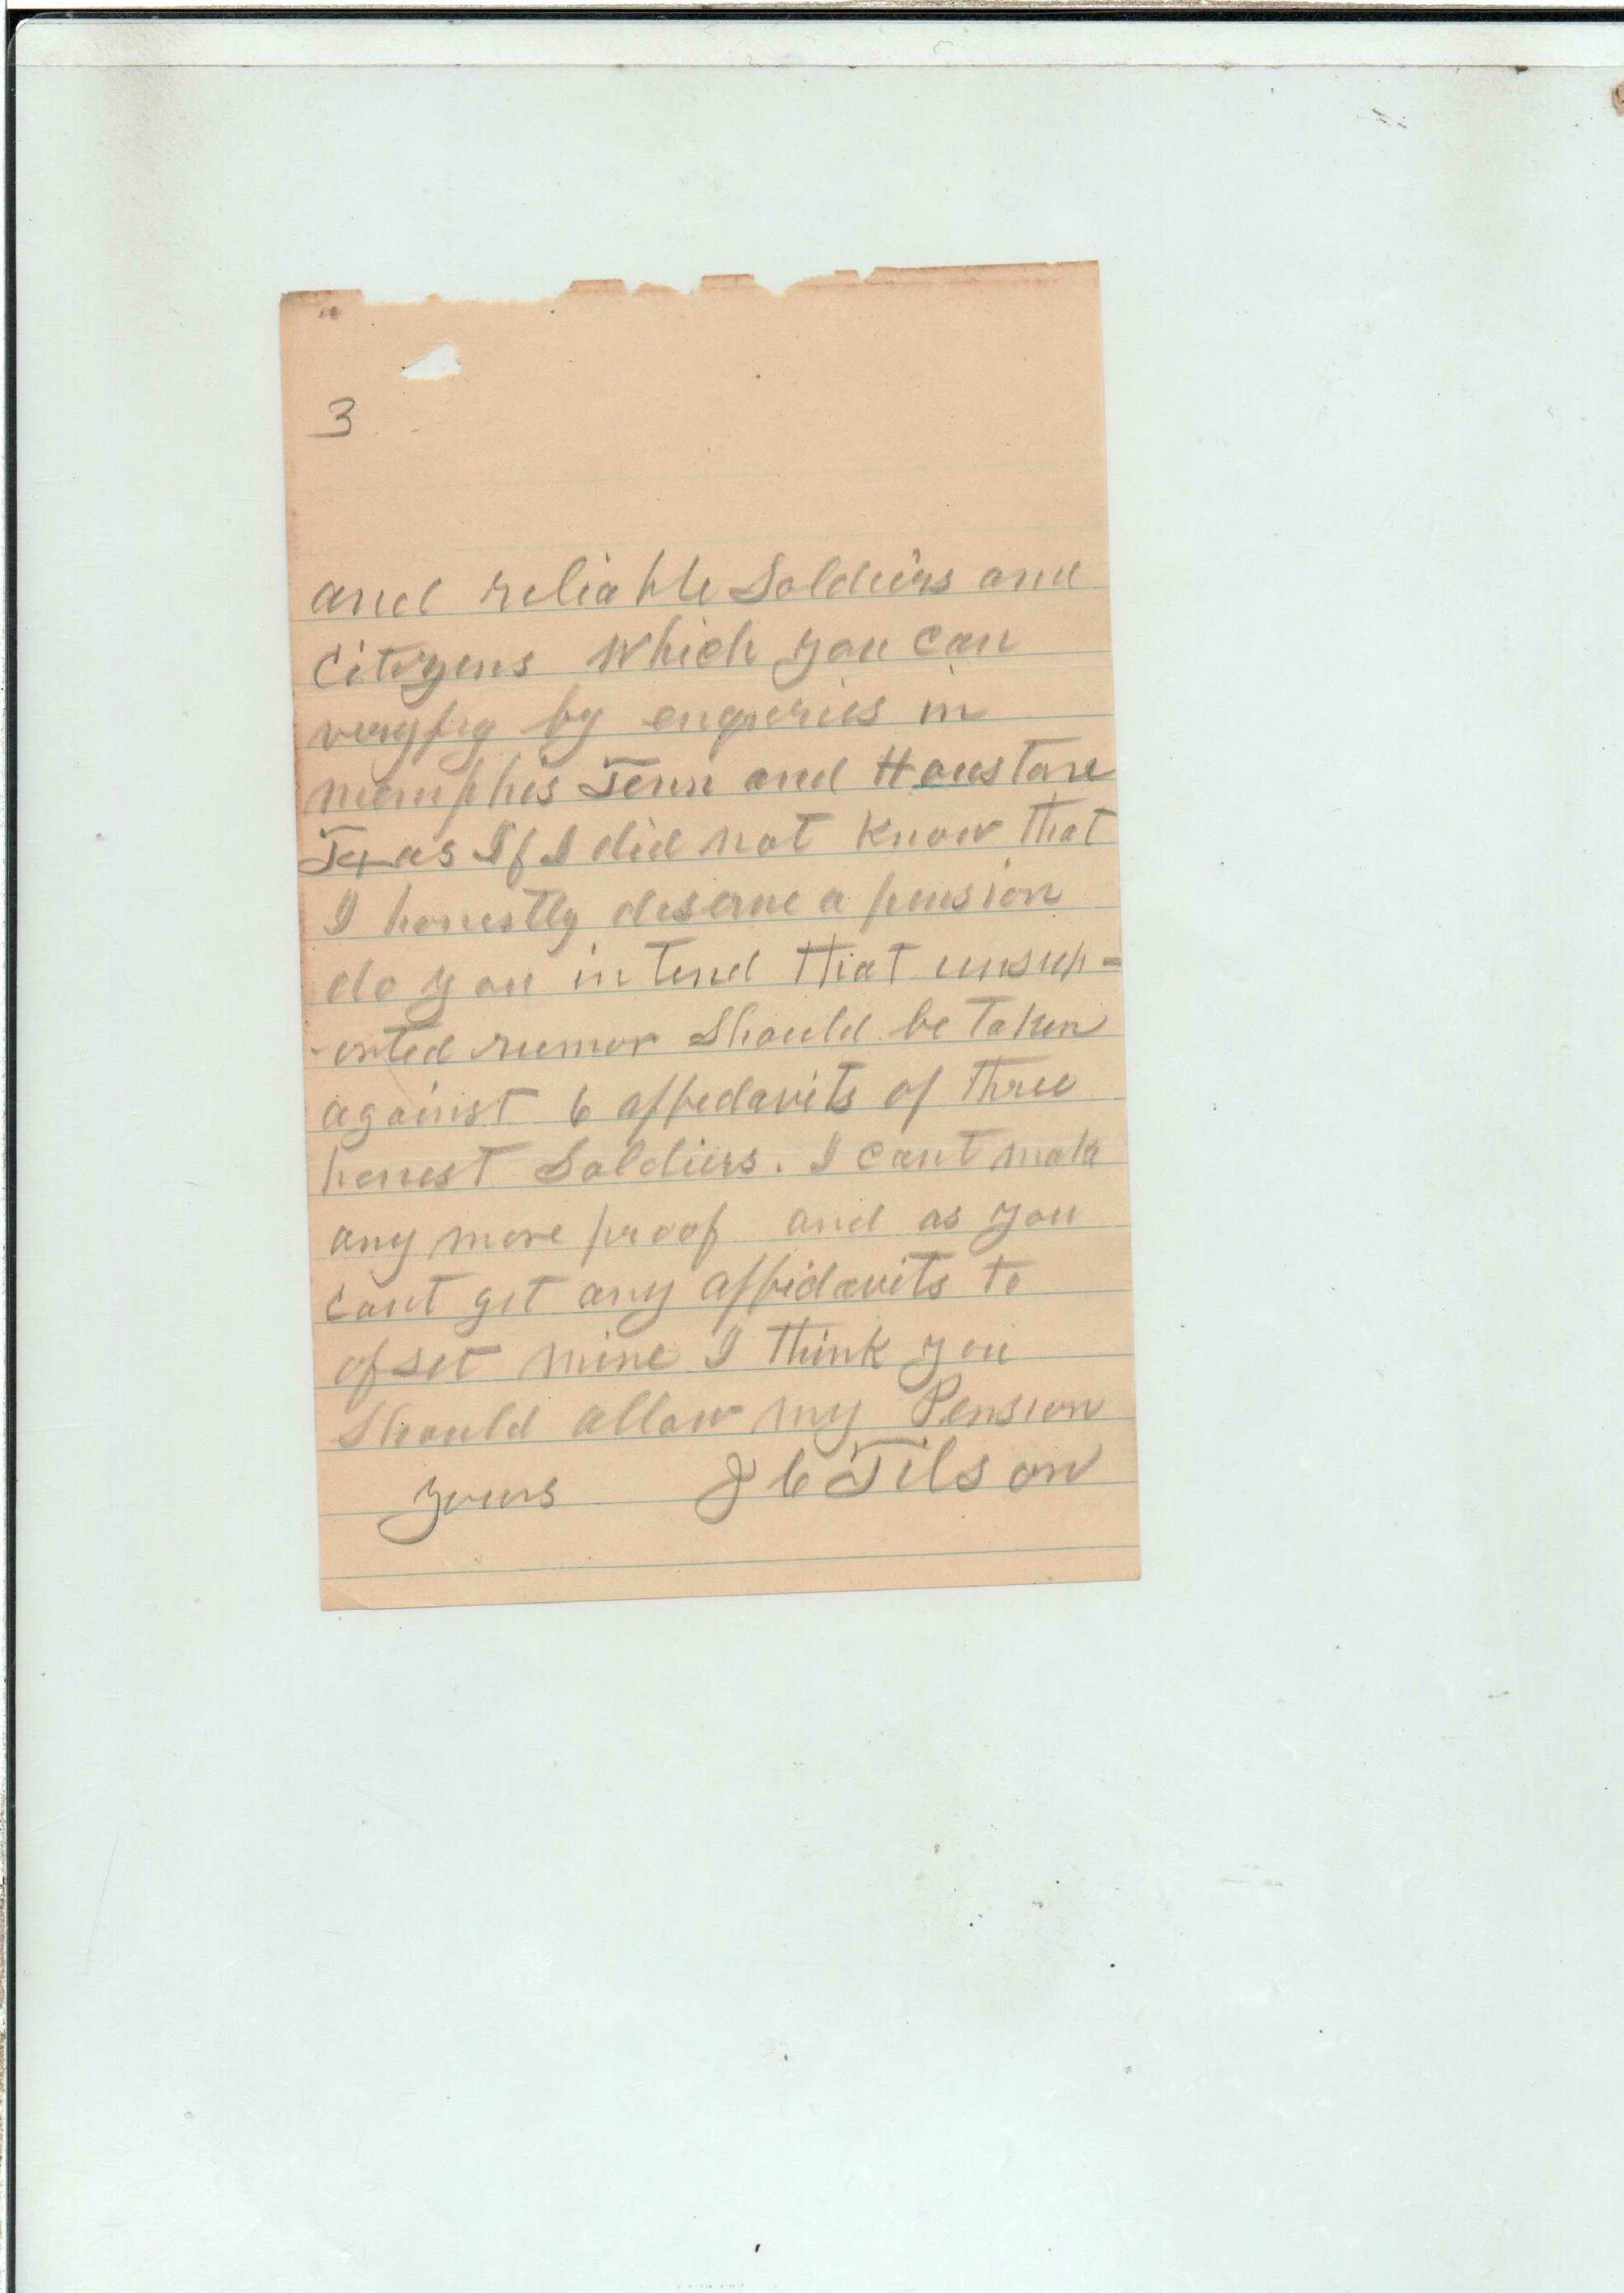 3
and reliable Soldiers and
Citizens Which you can
veryfy by enquries in
memphis Tenn and Houstone
Texas If I did not Know that
I honestly deserve a pension
do you intend that unsup-
-orted rumor Should be Taken
against 6 affedavits of Three
honest Soldiers. I cant make
any more proof and as you
cant get any affidavits to
ofset mine I Think you
Should allow my Pension
yours J C Tilson